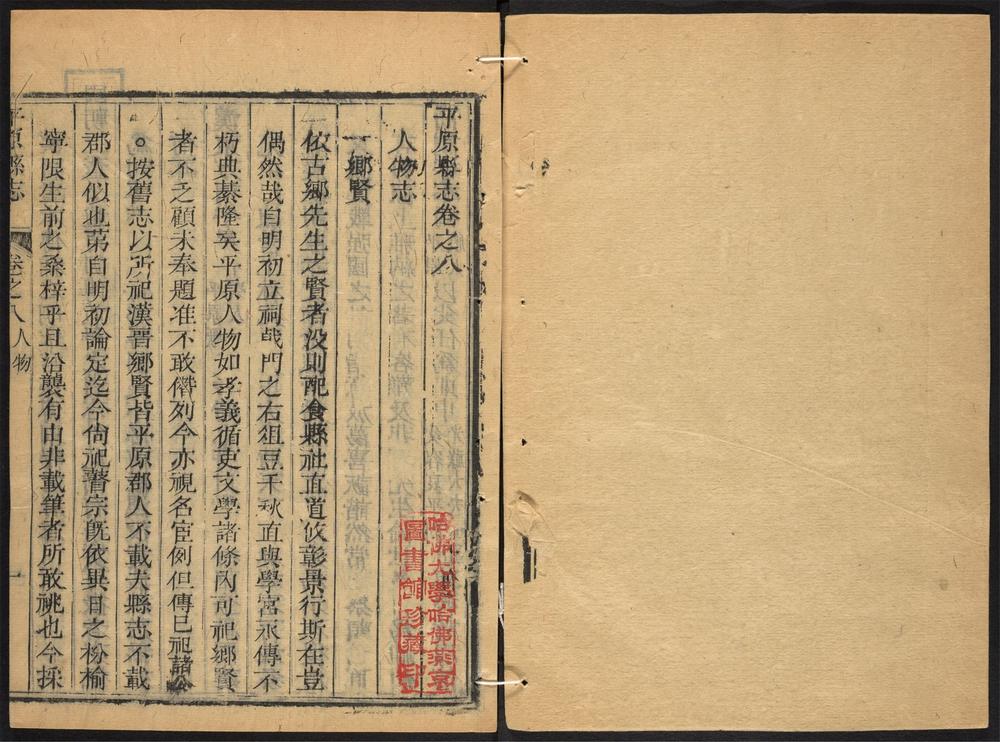 平原縣志卷之八
人物志
鄉賢
依古鄉先生之賢者沒則配食縣社直道攸彰景行斯在豈
偶然哉自明初立祠戟門之右俎豆千秋直與學宮永傳不
朽典綦隆矣平原人物如孝義循吏文學諸條內可祀鄉賢
者不乏顧未奉題准不敢僭列今亦視名宦例但傳已祀諸公
。按舊志以所祀漢晉鄉賢皆平原郡人不載夫縣志不載
郡人似也苐自明初論定迄今尙祀瞽宗旣依異日之枌榆
寧限生前之桑梓乎且沿襲有由非載筆者所敢祧也今採
平原縣志
卷之八人物
一
哈佛大學哈佛燕京
圖書館珍藏印